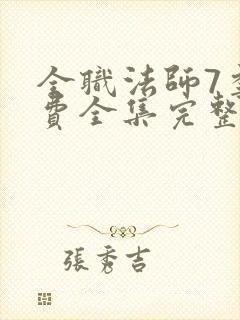 全職法師7
費全集完整
張秀吉